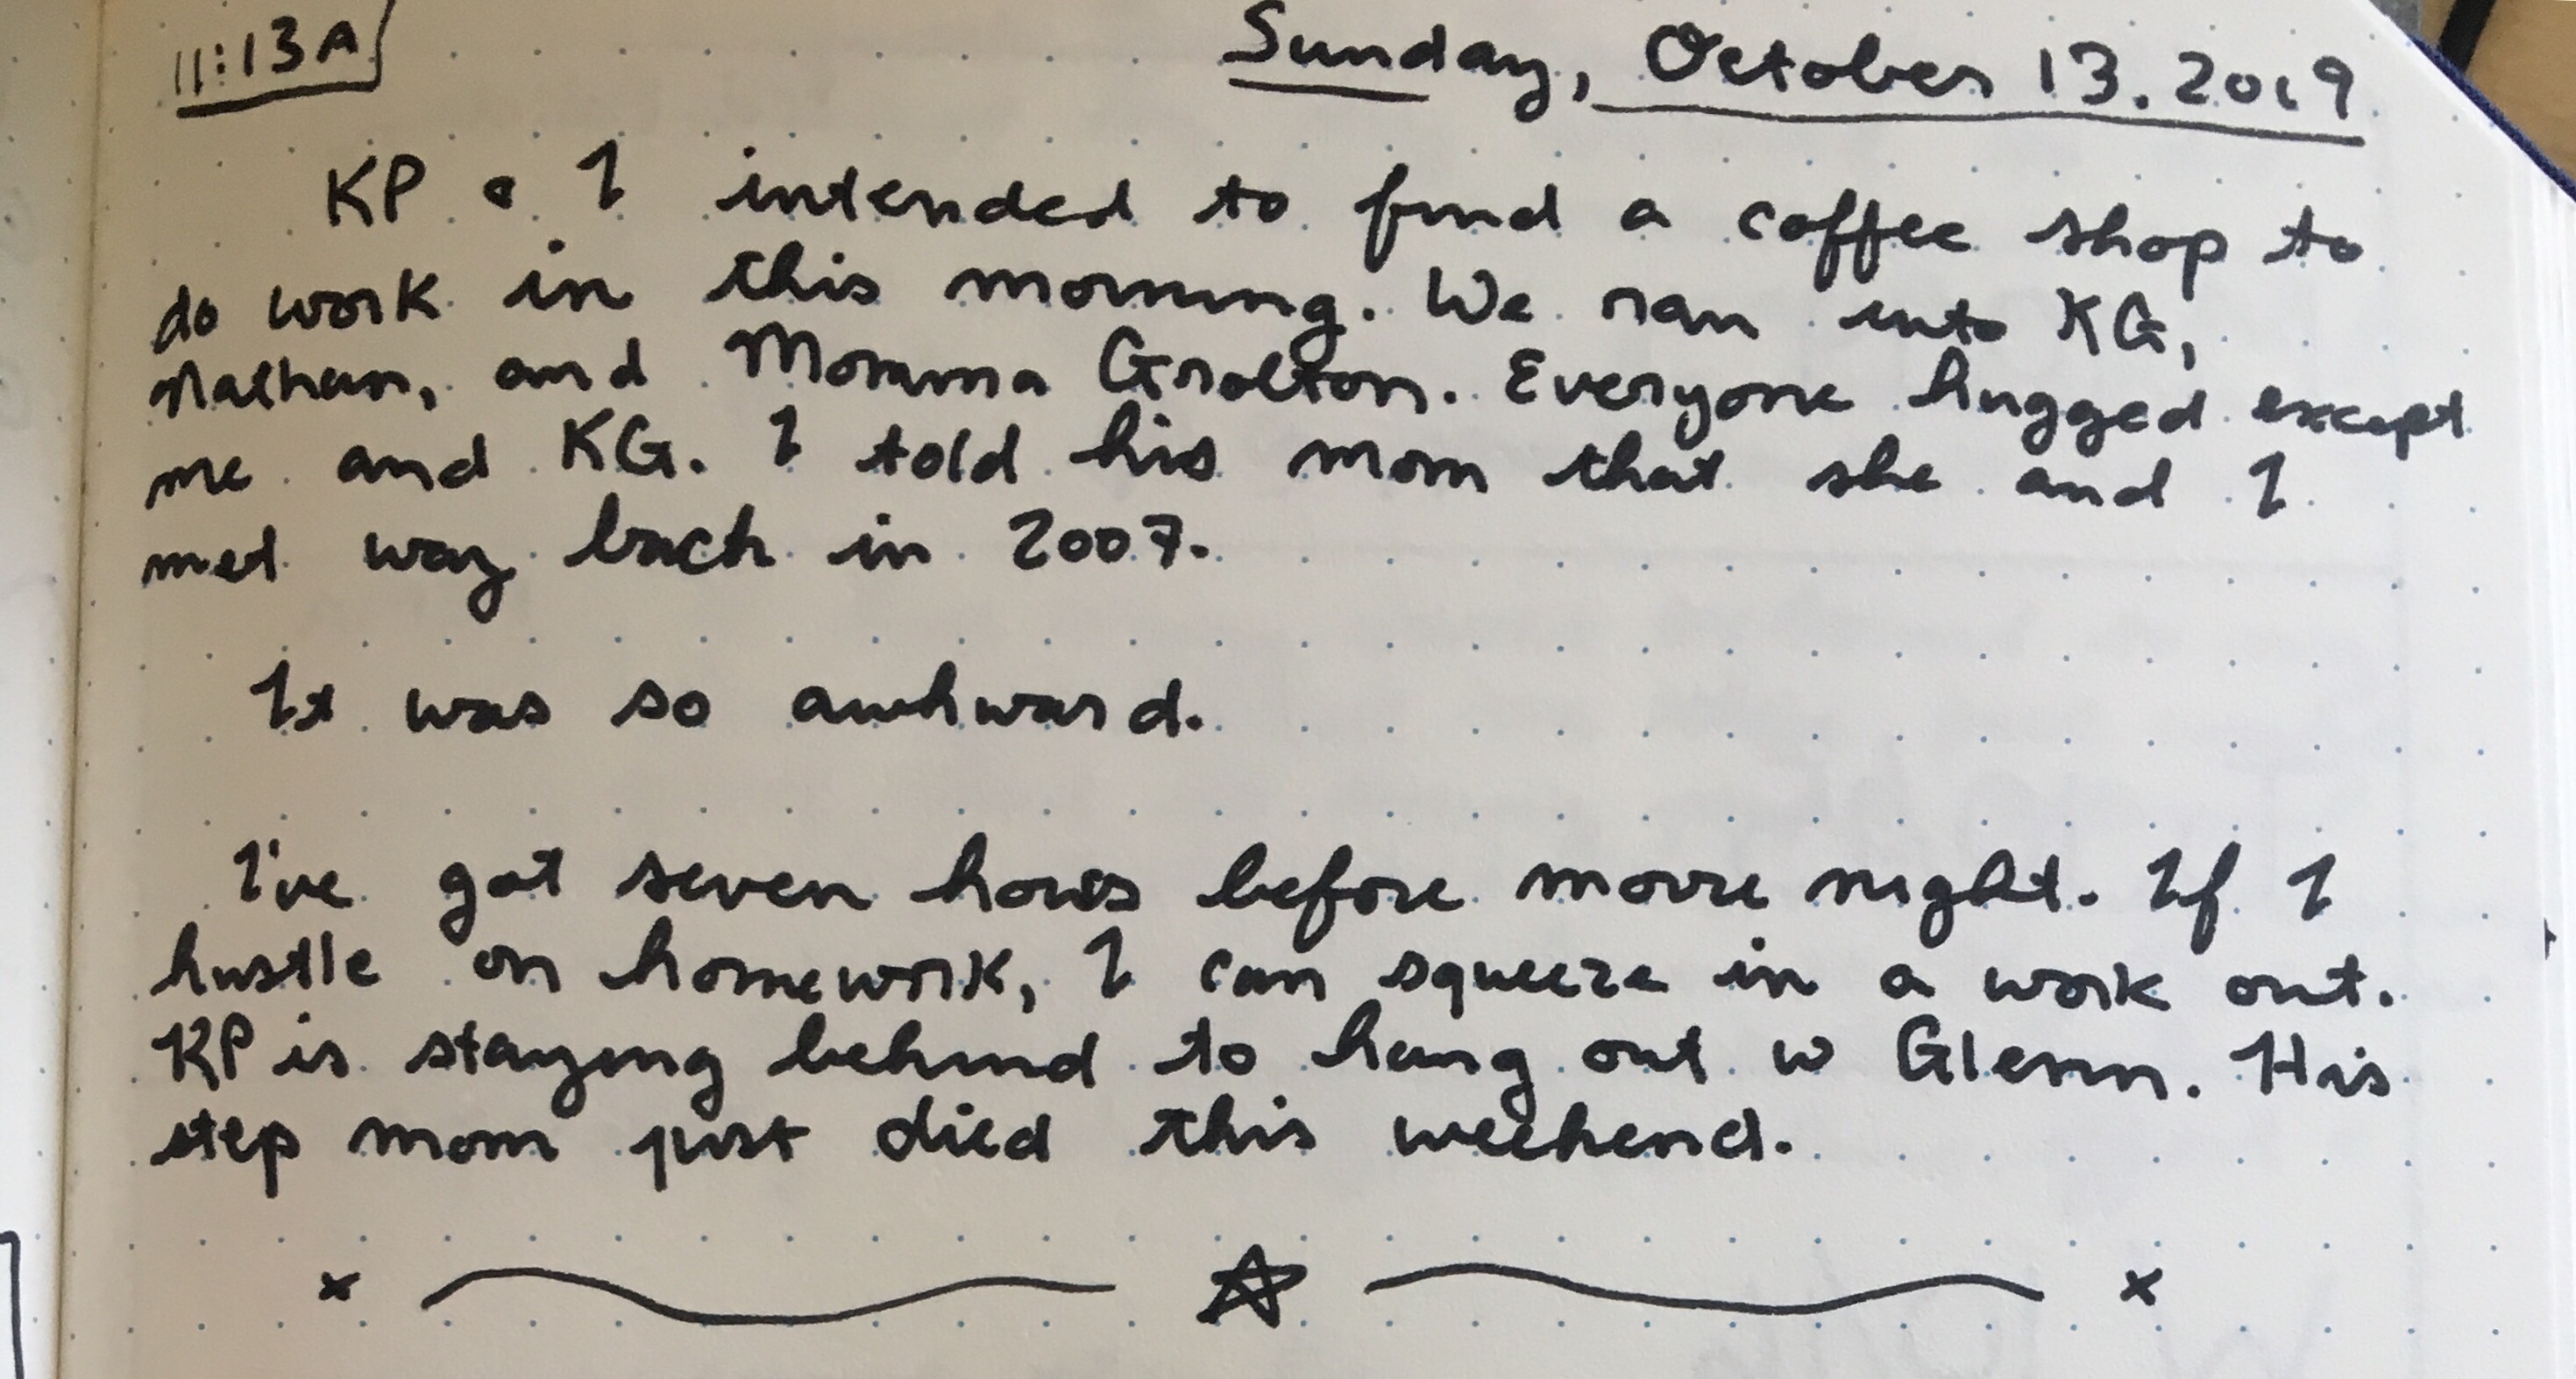 11:13A
Sunday, October 13. 2019
KP & I intended to find a coffee shop to
do work in this morning. We ran into KG,
Nathan, and Momma Grolton. Everyone hugged except
me and KG. I told his mom that she and I
met way back in 2007.
It was so awkward.
I've got seven hours before movie night. If I
hustle on homework, I can squeeze in a work out.
KP is staying behind to hang out w Glenn. His
step mom just died this weekend.